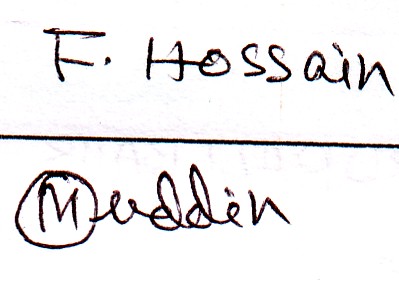 F. Hossain
Muddin